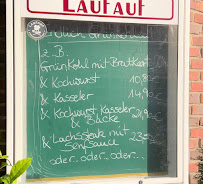 LAUFAUF
z.B.
Grünkohl mit Bratkart.
& Kochwurst 10,80
& Kasseler 14,90
& Kochwurst Kasseler
& Backe
& Lachssteak mit
Senfsauce
oder.. oder.. oder..